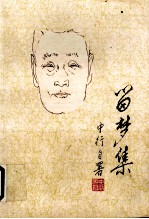 留梦集
中行自署